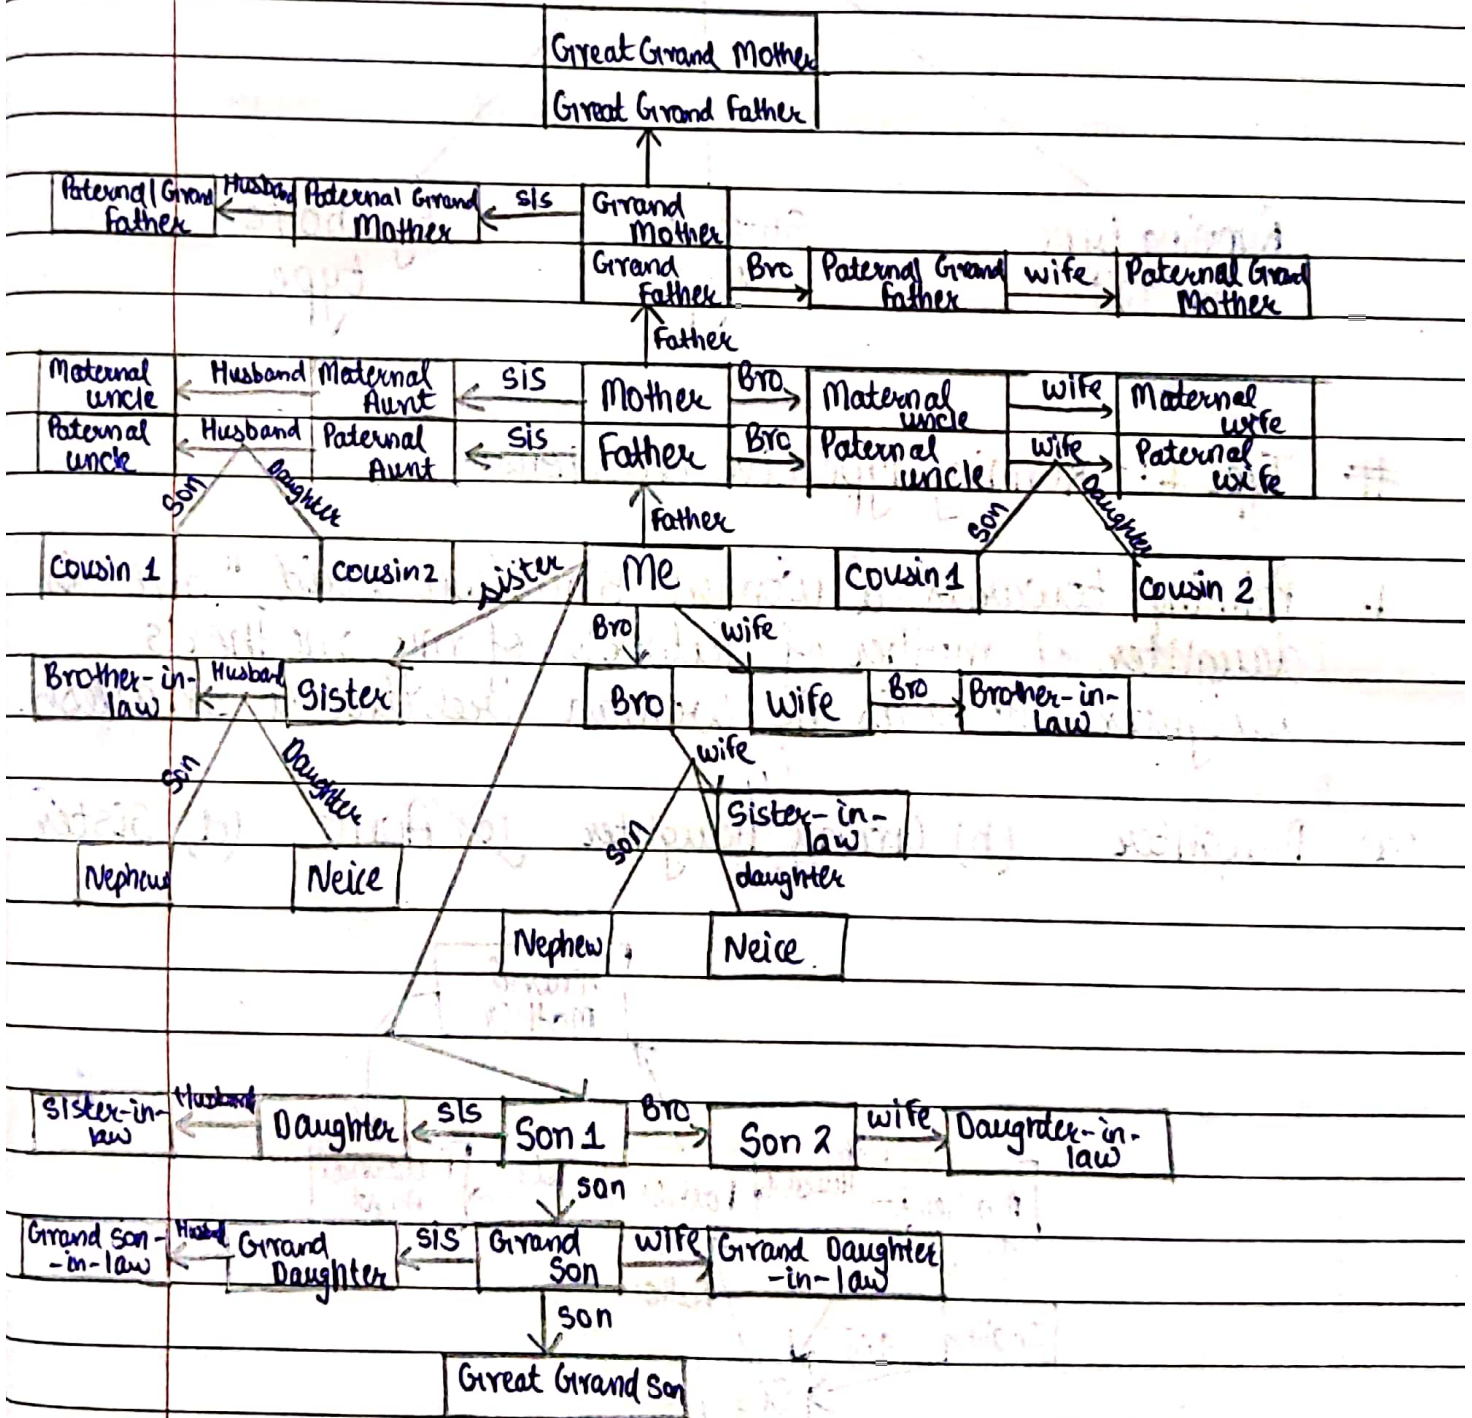 Great Grand Mother
Great Grand Father
Paternal Grand
Father
Husband
Paternal Grand
Mother
sis
Grand
Mother
Grand
Father
Bro
Paternal Grand
Father
wife
Paternal Grand
Mother
Father
Maternal
uncle
Husband
Maternal
Aunt
sis
Mother
Bro
Maternal
uncle
wife
Maternal
wife
Paternal
uncle
Husband
Paternal
Aunt
sis
Father
Bro
Paternal
uncle
wife
Paternal
wife
Son
Daughter
Father
Son
Daughter
Cousin 1
cousin2
sister
Me
Cousin 1
Cousin 2
Bro
wife
Brother-in-
law
Husband
Sister
Bro
Wife
Bro
Brother-in-
law
Son
Daughter
wife
Sister-in-
law
Son
daughter
Nephew
Neice
Nephew
Neice
Sister-in-
law
Husband
Daughter
sis
Son 1
Bro
Son 2
wife
Daughter-in-
law
son
Grand Son-
-in-law
Grand
Daughter
sis
Grand
Son
wife
Grand Daughter
-in-law
son
Great Grand Son